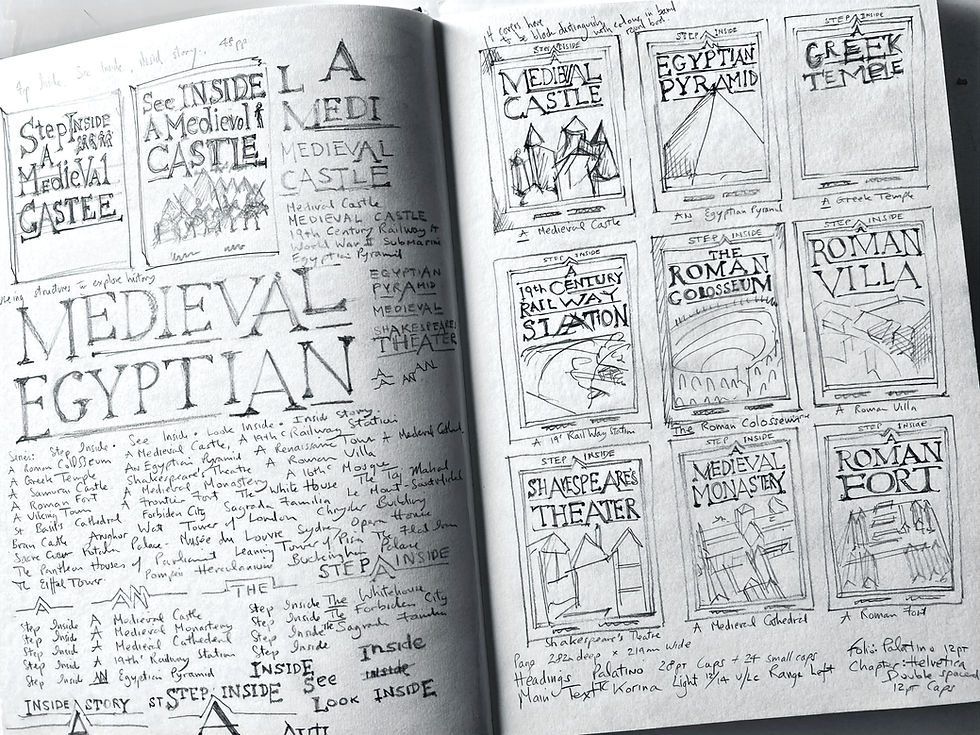 See Inside, Inside story. 48pp
Step INSIDE
A
MEDIEVAL
CASTLE
See INSIDE
A Medieval
CASTLE
L A
MEDI
MEDIEVAL
CASTLE
Medieval Castle
MEDIEVAL CASTLE
19th Century Railway
World War II Submarine
Egyptian Pyramid
EGYPTIAN
PYRAMID
MEDIEVAL
SHAKESPEARE'S
THEATER
A A AN
structures explore history
MEDIEVAL
EGYPTIAN
Series: Step Inside. See Inside. Look Inside. Inside Story.
A Roman Colosseum A Medieval Castle, A 19th C Railway Station
A Greek Temple An Egyptian Pyramid A Renaissance Town A Medieval Cathed.
A Samurai Castle Shakespeare's Theatre A Roman Villa
A Roman Fort A Medieval Monastery A 16thC Mosque
A Viking Town A Frontier Fort The White House The Taj Mahal
St Basil's Cathedral Forbiden City Sagrada Familia Le Mont-Saint-Michel
Bran Castle Anghor Wat Tower of London Chrysler Building
Sacre Coeur Potala Palace. Musée du Louvre Sydney Opera House
The Pantheon Houses of Parliament Leaning Tower of Pisa The Flat Iron
The Eiffel Tower Pompeii Herculanium Buckingham Palace
STEP INSIDE
A AN THE
Step Inside A Medieval Castle
Step Inside A Medieval Monastery
Step Inside A Medieval Cathederal
Step Inside A 19thC Railway Station
Step Inside AN Egyptian Pyramid
Step Inside The Whitehouse
Step Inside The Forbiden City
Step Inside The Sagrada Familia
INSIDE
See
LOOK INSIDE
Inside
INSIDE
INSIDE A STORY
STEP INSIDE
A
4 covers here
to be block distinguish with colour in band
STEP INSIDE
A
MEDIEVAL
CASTLE
A Medieval Castle
STEP INSIDE
AN
EGYPTIAN
PYRAMID
AN Egyptian Pyramid
STEP INSIDE
A
GREEK
TEMPLE
A Greek Temple
STEP INSIDE
A
19th CENTURY
RAILWAY
STATION
A 19C Railway Station
STEP INSIDE
THE
ROMAN
COLOSSEUM
The Roman Colosseum
STEP INSIDE
A
ROMAN
VILLA
A Roman Villa
STEP INSIDE
SHAKESPEARE'S
THEATER
Shakespeare's Theatre
STEP INSIDE
A
MEDIEVAL
MONASTERY
A Medieval Cathedral
STEP INSIDE
A
ROMAN
FORT
A Roman Fort
Page 282m deep x 219mm wide
Headings Palatino 28pt Caps + 24 small caps
Main Text ITC Korina Light 12/14 u/lc Range Left
Folio: Palatino 12pt
Chapter: Helvetica
Double spaced
12pt Caps